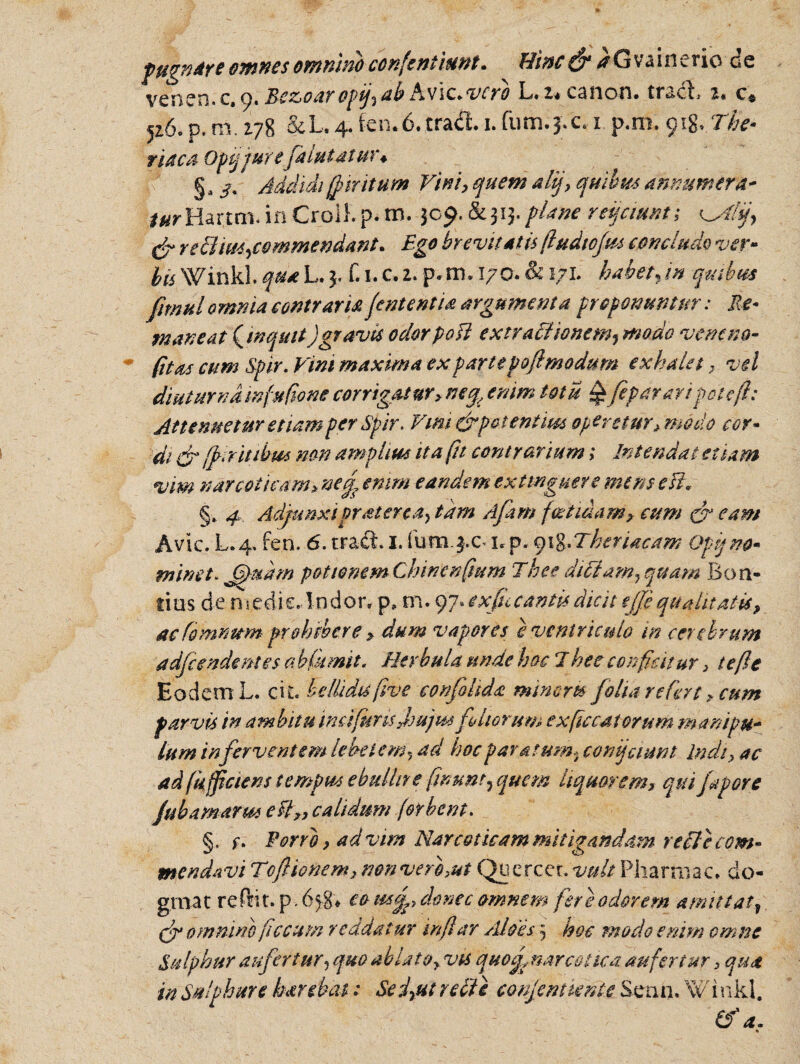 pugnare omnes omnino consentiunt. Hinc & à Gvainerio de
venen. c. 9. Bezoar opij, ab Avic. verò L. 2. canon. tract. 2. c.
526. p. m. 278 & L. 4. fen. 6. tract. 1. sum. 3. c. 1 p. m. 918. The-
riaca Opij jure salutatur.
§. 3. Addidi spiritum Vini, quem alij, quibus annumera-
tur Hartm. in Croll. p. m. 309. & 313. plane reijciunt; Alij,
& rectius, commendant. Ego brevitatis studiosus concludo ver-
bis Winkl. quæ L. 3. f. 1. c. 2. p. m. 170. & 171. habet, in quibus
simul omnia contraria sententiæ argumenta proponuntur: Re-
maneat (inquit) gravis odor post extractionem, modo veneno-
sitas cum Spir. Vini maxima ex parte postmodum exhalet, vel
diuturnâ infusione corrigatur, neq; enim totū 🜍 separari potest:
Attenuetur etiam per Spir. Vini & potentius operetur, modo cor-
di & spiritibus non amplius ita sit contrarium; Intendat etiam
vim narcoticam, neq; enim eandem extinguere mens est.
§. 4 Adjunxi præterea, tàm Asam fœtidam, cum & eam
Avic. L. 4. fen. 6. tract. 1. sum 3. c. 1. p. 918. Theriacam Opij no-
minet. Quàm potionem Chinensium Thee dictam, quam Bon-
tius de medic. Indor. p. m. 97. exsiccantis dicit esse qualitatis,
ac somnum prohibere, dum vapores è ventriculo in cerebrum
adscendentes absumit. Herbula unde hoc Thee conficitur, teste
Eodem L. cit. bellidis sive consolidæ minoris folia refert, cum
parvis in ambitu incisuris, hujus foliorum exsiccatorum manipu-
lum in ferventem lebetem, ad hoc paratum, conijciunt Indi, ac
ad sufficiens tempus ebullire sinunt, quem liquorem, qui sapore
subamarus est,, calidum sorbent.
§. 5. Porrò, ad vim Narcoticam mitigandam recte com-
mendavi Tostionem, non verò, ut Quercet. vult Pharmac. do-
gmat restit. p. 658. eo usq;, donec omnem ferè odorem amittat,
& omninò siccum reddatur instar Aloës; hoc modo enim omne
Sulphur aufertur, quo ablato, vis quoq; narcotica aufertur, quæ
in Sulphure hærebat: Sed, ut rectè consentiente Senn. Winkl.
& a.